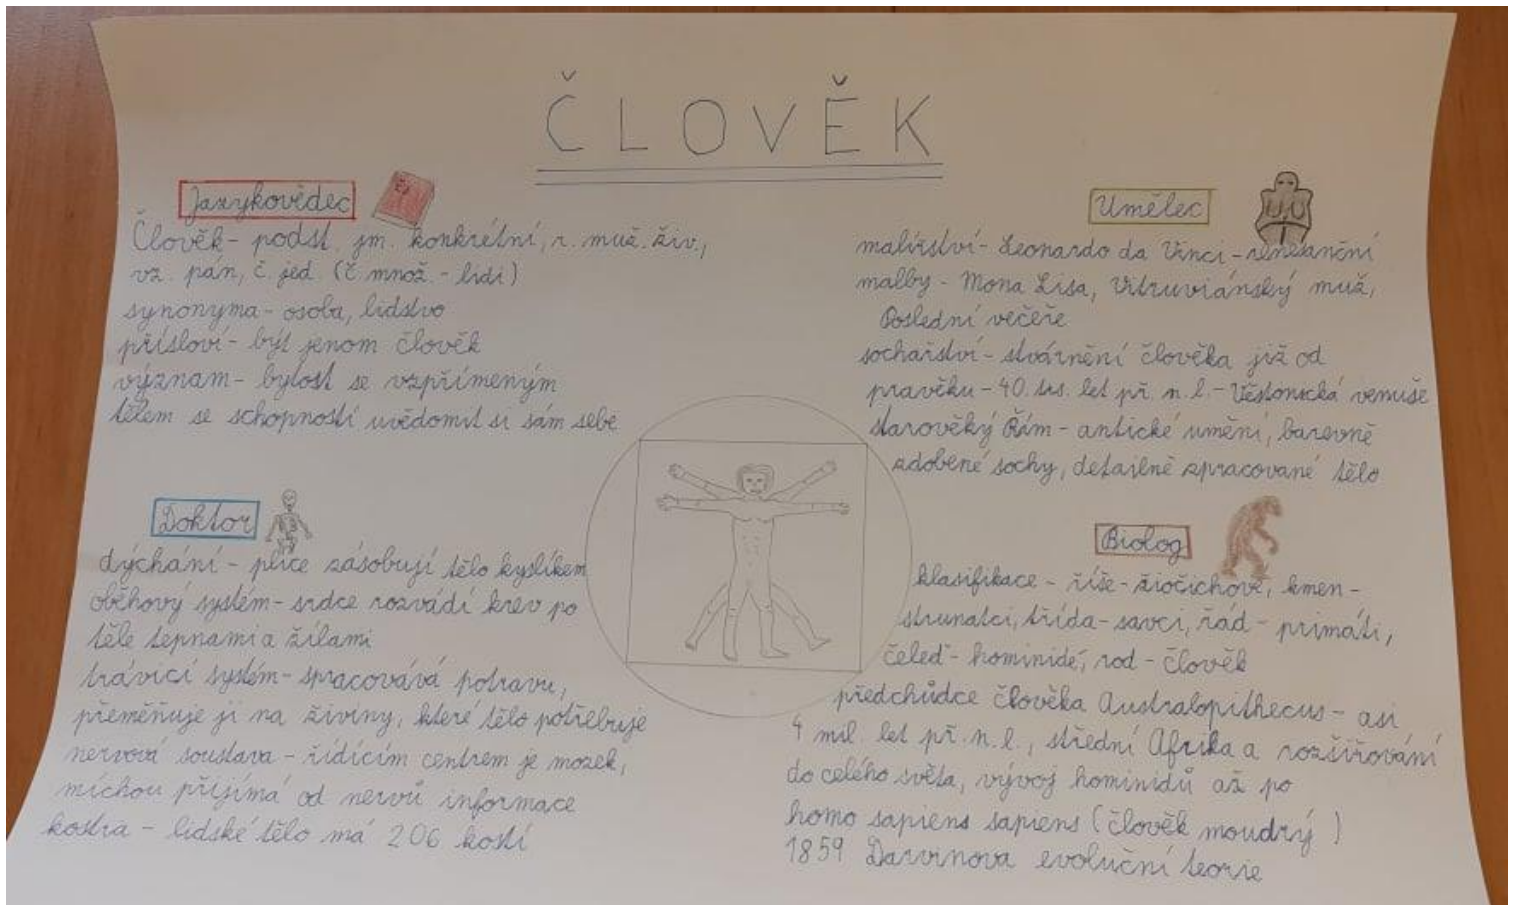 ČLOVĚK
Jazykovědec
Člověk - podst. jm. konkrétní, r. muž. živ.,
vz. pán, č. jed. (č. množ. - lidi)
synonyma - osoba, lidstvo
přísloví - být jenom člověk
význam - bytost se vzpřímeným
tělem se schopností uvědomit si sám sebe
Umělec
malířství - Leonardo da Vinci - renesanční
malby - Mona Lisa, Vitruviánský muž,
Poslední večeře
sochařství - stvárnění člověka již od
pravěku - 40. tis. let př. n. l. - Věstonická venuše
starověký Řím - antické umění, barevně
zdobené sochy, detailně zpracované tělo
Doktor
dýchání - plíce zásobují tělo kyslíkem
oběhový systém - srdce rozvádí krev po
těle tepnami a žílami
trávicí systém - spracovává potravu,
přeměňuje ji na živiny, které tělo potřebuje
nervová soustava - řídícím centrem je mozek,
míchou přijímá od nervů informace
kostra - lidské tělo má 206 kostí
Biolog
klasifikace - říše - žiočichové, kmen -
strunatci, třída - savci, řád - primáti,
čeleď - hominidé, rod - člověk
předchůdce člověka Australopithecus - asi
4 mil. let př. n. l., střední Afrika a rozšiřování
do celého světa, vývoj hominidů až po
homo sapiens sapiens (člověk moudrý)
1859 Darvinova evoluční teorie